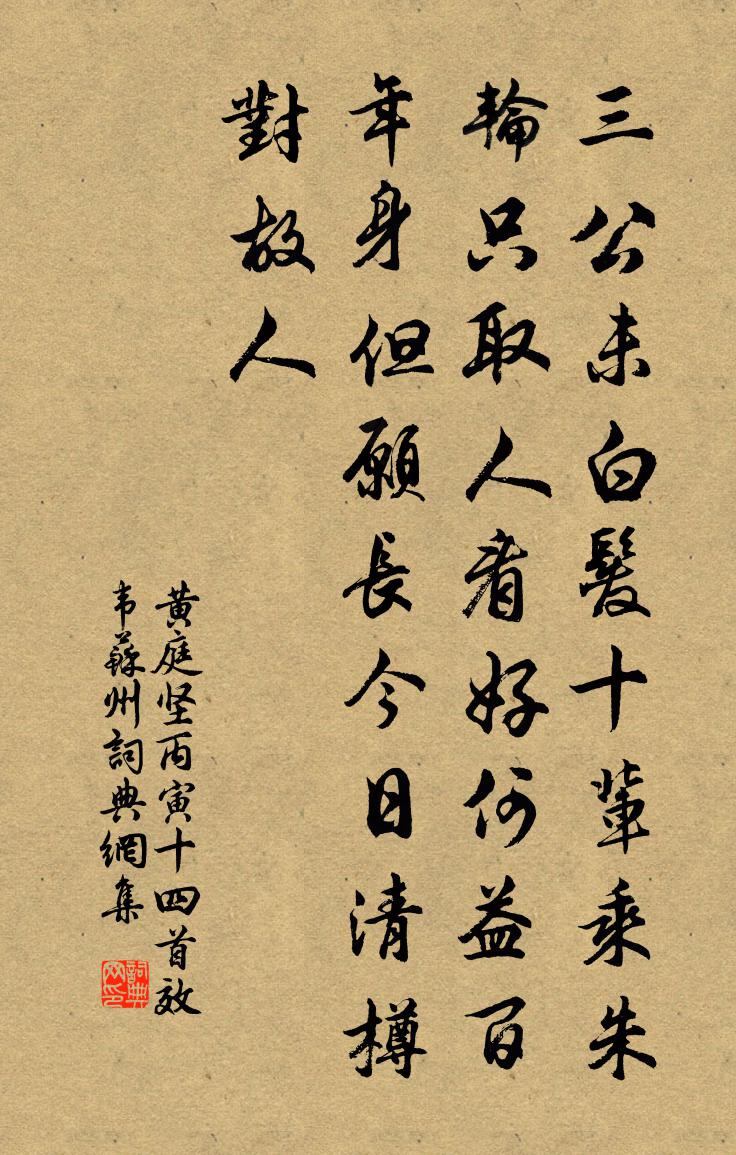 三公未白髮十輩乘朱
輪只取人看好何益百
年身但願長今日清樽
對故人
黄庭坚丙寅十四首效
韦蘇州詞典網集
詞典网印